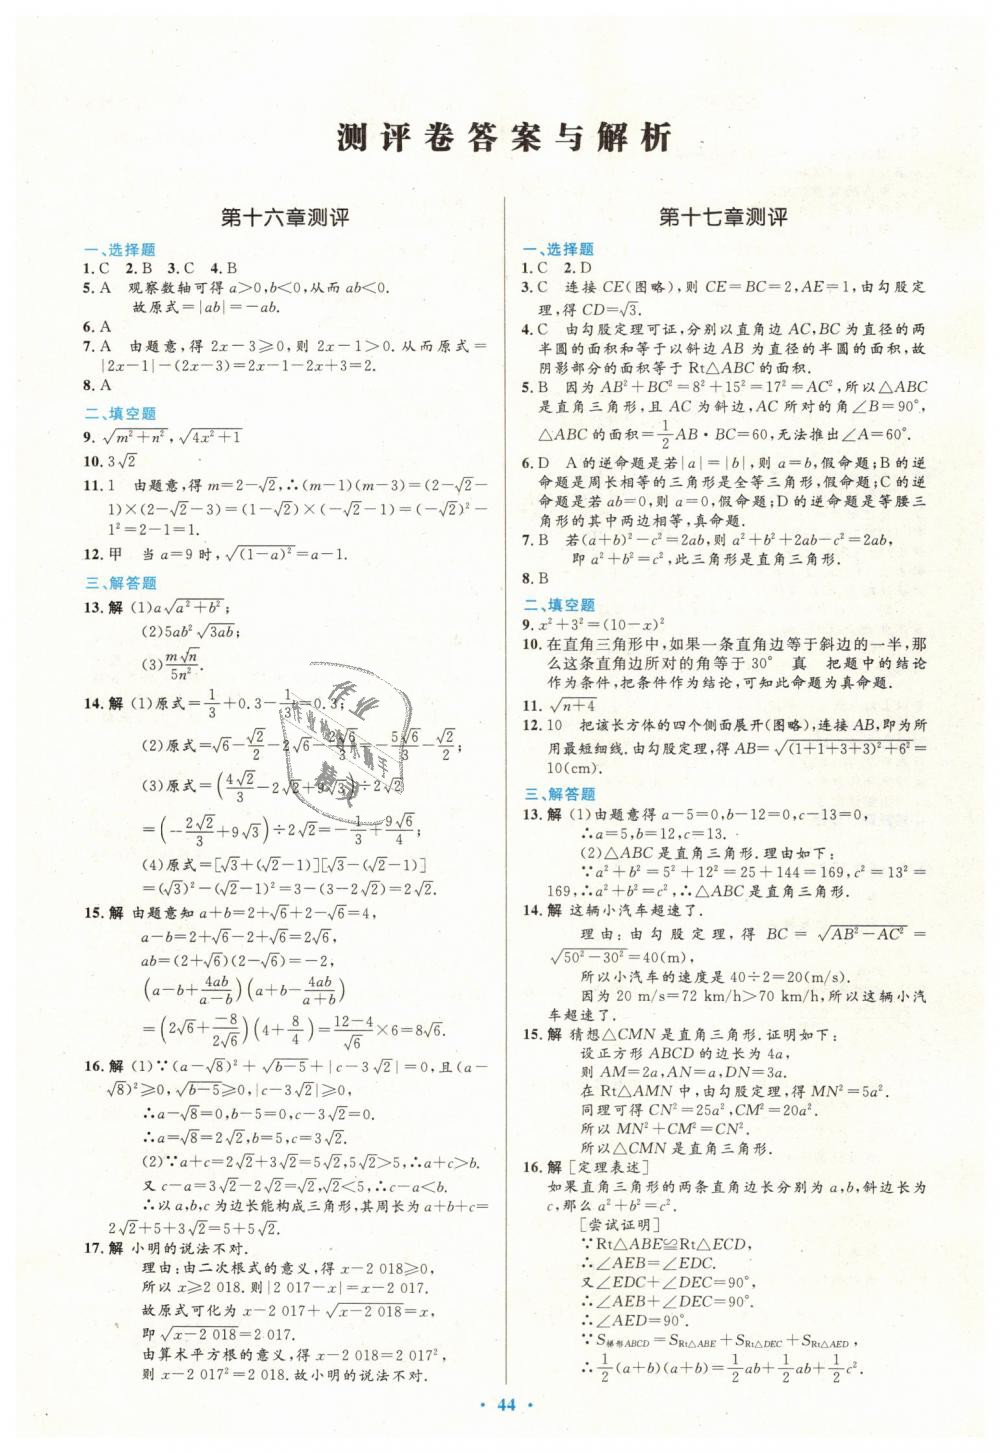 测评卷答案与解析
第十六章测评
一、选择题
1. C 2. B 3. C 4. B
5. A 观察数轴可得 a>0,b<0,从而 ab<0.
故原式=|ab|=-ab.
6. A
7. A 由题意,得 2x-3≥0,则 2x-1>0. 从而原式=
|2x-1|-(2x-3)=2x-1-2x+3=2.
8. A
二、填空题
9. √(m²+n²), √(4x²+1)
10. 3√2
11. 1 由题意,得 m=2-√2,∴(m-1)(m-3)=(2-√2-
1)×(2-√2-3)=(1-√2)×(-√2-1)=(-√2)²-
1²=2-1=1.
12. 甲 当 a=9 时,√((1-a)²)=a-1.
三、解答题
13. 解 (1)a√(a²+b²);
(2)5ab²√(3ab);
(3)m√n/5n².
14. 解 (1)原式=1/3+0.3-1/3=0.3;
(2)原式=√6-√2/2-2√6-2√6/3=-5√6/3-√2/2;
(3)原式=(4√2/3-2√2+9√3)÷2√2
=(-2√2/3+9√3)÷2√2=-1/3+9√6/4;
(4)原式=[√3+(√2-1)][√3-(√2-1)]
=(√3)²-(√2-1)²=3-(3-2√2)=2√2.
15. 解 由题意知 a+b=2+√6+2-√6=4,
a-b=2+√6-2+√6=2√6,
ab=(2+√6)(2-√6)=-2,
(a-b+4ab/(a-b))(a+b-4ab/(a+b))
=(2√6+(-8)/2√6)(4+8/4)=(12-4)/√6×6=8√6.
16. 解 (1)∵(a-√8)²+√(b-5)+|c-3√2|=0,且(a-
√8)²≥0,√(b-5)≥0,|c-3√2|≥0,
∴a-√8=0,b-5=0,c-3√2=0.
∴a=√8=2√2,b=5,c=3√2.
(2)∵a+c=2√2+3√2=5√2,5√2>5,∴a+c>b.
又 c-a=3√2-2√2=√2,√2<5,∴c-a<b.
∴以 a,b,c 为边长能构成三角形,其周长为 a+b+c=
2√2+5+3√2=5+5√2.
17. 解 小明的说法不对.
理由:由二次根式的意义,得 x-2 018≥0,
所以 x≥2 018. 则|2 017-x|=x-2 017.
故原式可化为 x-2 017+√(x-2 018)=x,
即√(x-2 018)=2 017.
由算术平方根的意义,得 x-2 018=2 017²,
则 x-2 017²=2 018. 故小明的说法不对.
第十七章测评
一、选择题
1. C 2. D
3. C 连接 CE(图略),则 CE=BC=2,AE=1,由勾股定
理,得 CD=√3.
4. C 由勾股定理可证,分别以直角边 AC,BC 为直径的两
半圆的面积和等于以斜边 AB 为直径的半圆的面积,故
阴影部分的面积等于 Rt△ABC 的面积.
5. B 因为 AB²+BC²=8²+15²=17²=AC²,所以△ABC
是直角三角形,且 AC 为斜边,AC 所对的角∠B=90°,
△ABC 的面积=1/2AB·BC=60,无法推出∠A=60°.
6. D A 的逆命题是若|a|=|b|,则 a=b,假命题;B 的逆
命题是周长相等的三角形是全等三角形,假命题;C 的逆
命题是若 ab=0,则 a=0,假命题;D 的逆命题是等腰三
角形的其中两边相等,真命题.
7. B 若(a+b)²-c²=2ab,则 a²+b²+2ab-c²=2ab,
即 a²+b²=c²,此三角形是直角三角形.
8. B
二、填空题
9. x²+3²=(10-x)²
10. 在直角三角形中,如果一条直角边等于斜边的一半,那
么这条直角边所对的角等于 30° 真 把题中的结论
作为条件,把条件作为结论,可知此命题为真命题.
11. √(n+4)
12. 10 把该长方体的四个侧面展开(图略),连接 AB,即为所
用最短细线. 由勾股定理,得 AB=√((1+1+3+3)²+6²)=
10(cm).
三、解答题
13. 解 (1)由题意得 a-5=0,b-12=0,c-13=0,
∴a=5,b=12,c=13.
(2)△ABC 是直角三角形. 理由如下:
∵a²+b²=5²+12²=25+144=169,c²=13²=
169,∴a²+b²=c²,∴△ABC 是直角三角形.
14. 解 这辆小汽车超速了.
理由:由勾股定理,得 BC=√(AB²-AC²)=
√(50²-30²)=40(m),
所以小汽车的速度是 40÷2=20(m/s).
因为 20 m/s=72 km/h>70 km/h,所以这辆小汽
车超速了.
15. 解 猜想△CMN 是直角三角形. 证明如下:
设正方形 ABCD 的边长为 4a,
则 AM=2a,AN=a,DN=3a.
在 Rt△AMN 中,由勾股定理,得 MN²=5a².
同理可得 CN²=25a²,CM²=20a².
所以 MN²+CM²=CN².
所以△CMN 是直角三角形.
16. 解 [定理表述]
如果直角三角形的两条直角边长分别为 a,b,斜边长为
c,那么 a²+b²=c².
[尝试证明]
∵Rt△ABE≌Rt△ECD,
∴∠AEB=∠EDC.
又∠EDC+∠DEC=90°,
∴∠AEB+∠DEC=90°.
∴∠AED=90°.
∵S梯形ABCD=SRt△ABE+SRt△DEC+SRt△AED,
∴1/2(a+b)(a+b)=1/2ab+1/2ab+1/2c².
· 44 ·
作业
作业检查小助手
精灵